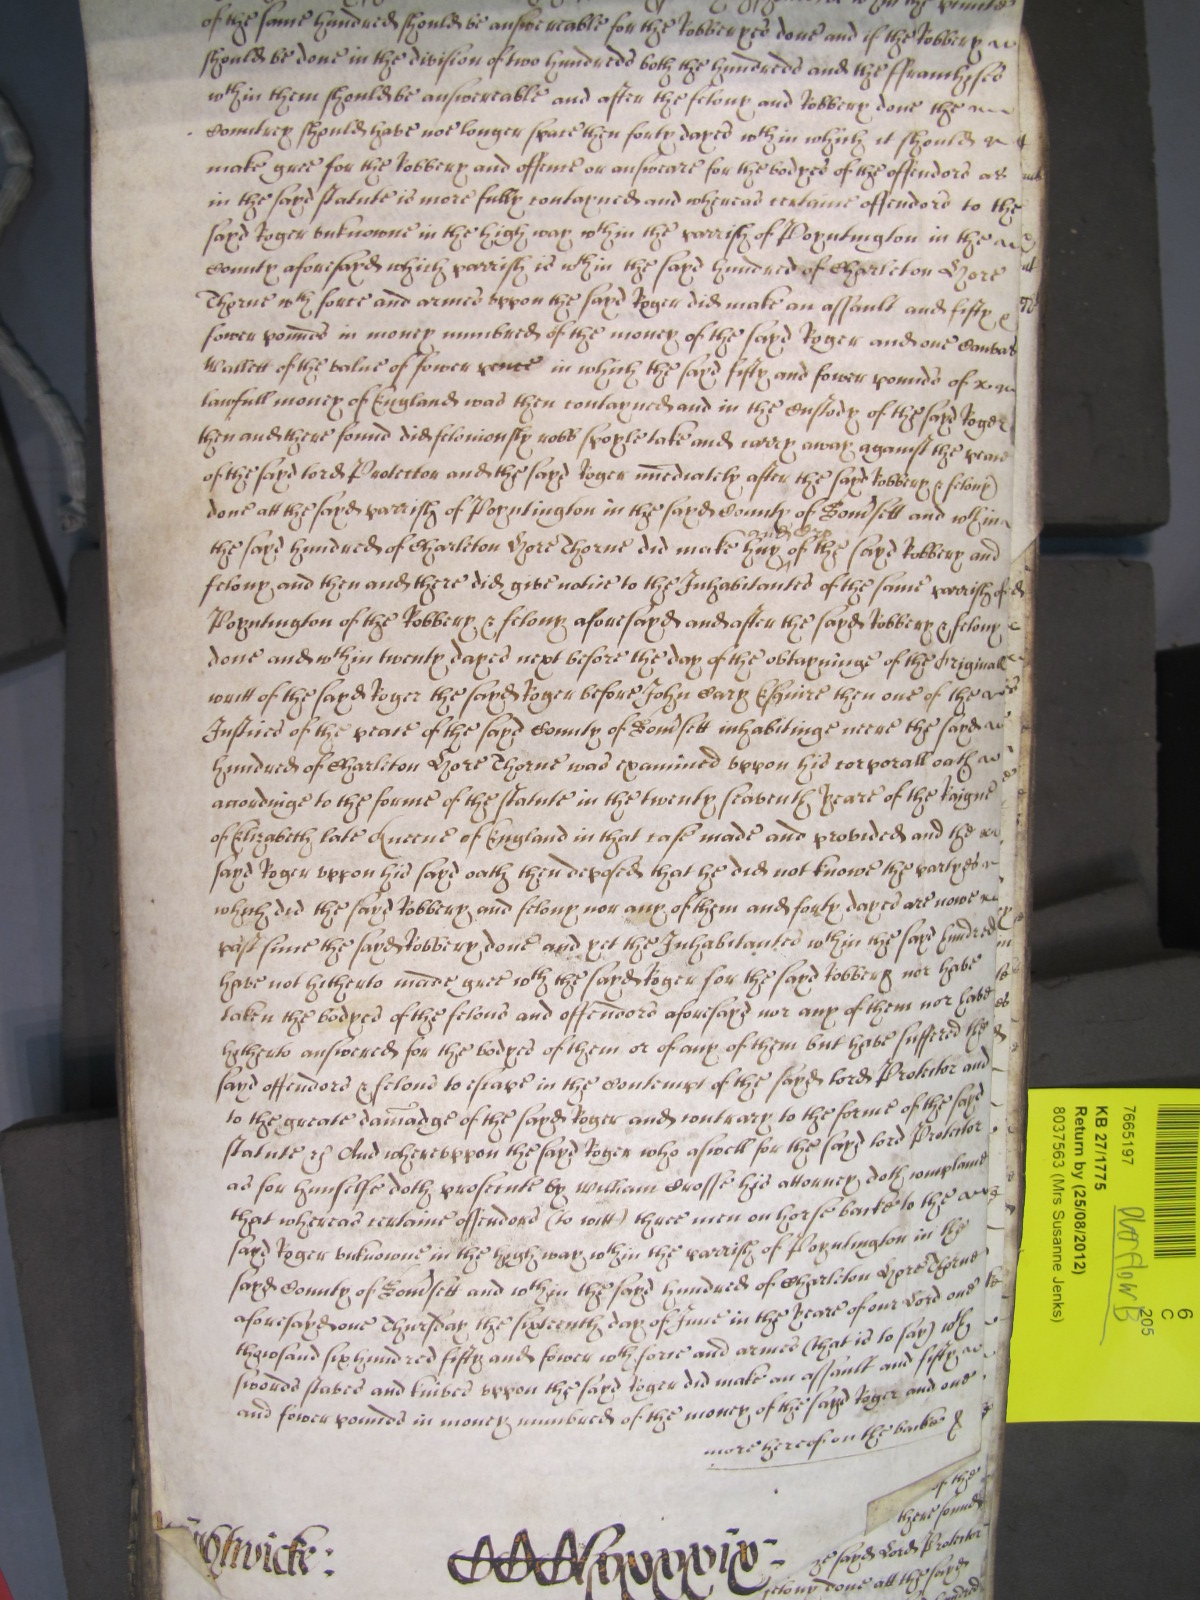 of the same hundred should be answereable for the Robberyes done and if the Robbery
should be done in the division of two hundreds both the hundreds and the ffranchises
wthin them should be answereable and after the felony and Robbery done the
Countrey should have noe longer space then forty dayes wthin which it should
make gree for the Robbery and offence or answeare for the bodyes of the offendors as
in the sayd statute is more fully contayned and whereas certaine offendors to the
sayd Roger unknowne in the high way wthin the parrish of Poyntington in the
County aforesayd which parrish is wthin the sayd hundred of Charleton Hore
Thorne wth force and armes uppon the sayd Roger did make an assault and fifty &
fower pounds in money numbred of the money of the sayd Roger and one Canvas
Wallett of the value of fower pence in which the sayd fifty and fower pounds of
lawfull money of England was then contayned and in the Custody of the sayd Roger
then and there found did feloniously robb spoyle take and carry away against the peace
of the sayd lord Protector and the sayd Roger imediately after the sayd Robbery & felony
done att the sayd parrish of Poyntington in the sayd County of Somsett and wthin
the sayd hundred of Charleton Hore Thorne did make huy and Cry of the sayd Robbery and
felony and then and there did give notice to the Inhabitants of the same parrish of
Poyntington of the Robbery & felony aforesayd and after the sayd Robbery & felony
done and wthin twenty dayes next before the day of the obtayninge of the Originall
writt of the sayd Roger the sayd Roger before John Cary Esquire then one of the
Justices of the peace of the sayd County of Somsett inhabitinge neere the sayd
hundred of Charleton Hore Thorne was examined uppon his corporall oath
accordinge to the forme of the statute in the twenty seaventh yeare of the Raigne
of Elizabeth late Queene of England in that case made and provided and the
sayd Roger uppon his sayd oath then deposed that he did not knowe the partyes
which did the sayd Robbery and felony nor any of them and forty dayes are nowe
past since the sayd Robbery done and yet the Inhabitants wthin the sayd hundred
have not hitherto made gree wth the sayd Roger for the sayd Robbery nor have
taken the bodyes of the felons and offendors aforesayd nor any of them nor have
hitherto answered for the bodyes of them or of any of them but have suffered the
sayd offendors & felons to escape in the Contempt of the sayd lord Protector and
to the greate damadge of the sayd Roger and contrary to the forme of the sayd
statute &c And whereuppon the sayd Roger who aswell for the sayd lord Protector
as for himselfe doth prosecute by William Crosse his attorney doth complaine
that whereas certaine offendors (to witt) three men on horse backe to the
sayd Roger unknowne in the high way wthin the parrish of Poyntington in the
sayd County of Somsett and wthin the sayd hundred of Charleton Hore Thorne
aforesayd one Thursday the sixteenth day of June in the yeare of our Lord one
thowsand six hundred fifty and fower wth force and armes (that is to say) wth
swords staves and knives uppon the sayd Roger did make an assault and fifty
and fower pounds in money numbred of the money of the sayd Roger and one
more hereof on the backe
of the
there found
sayd Lord Protector
felony done att the sayd
hundred
7665197
KB 27/1775
Return by (25/08/2012)
8037563 (Mrs Susanne Jenks)
Overflow B
205
6
C